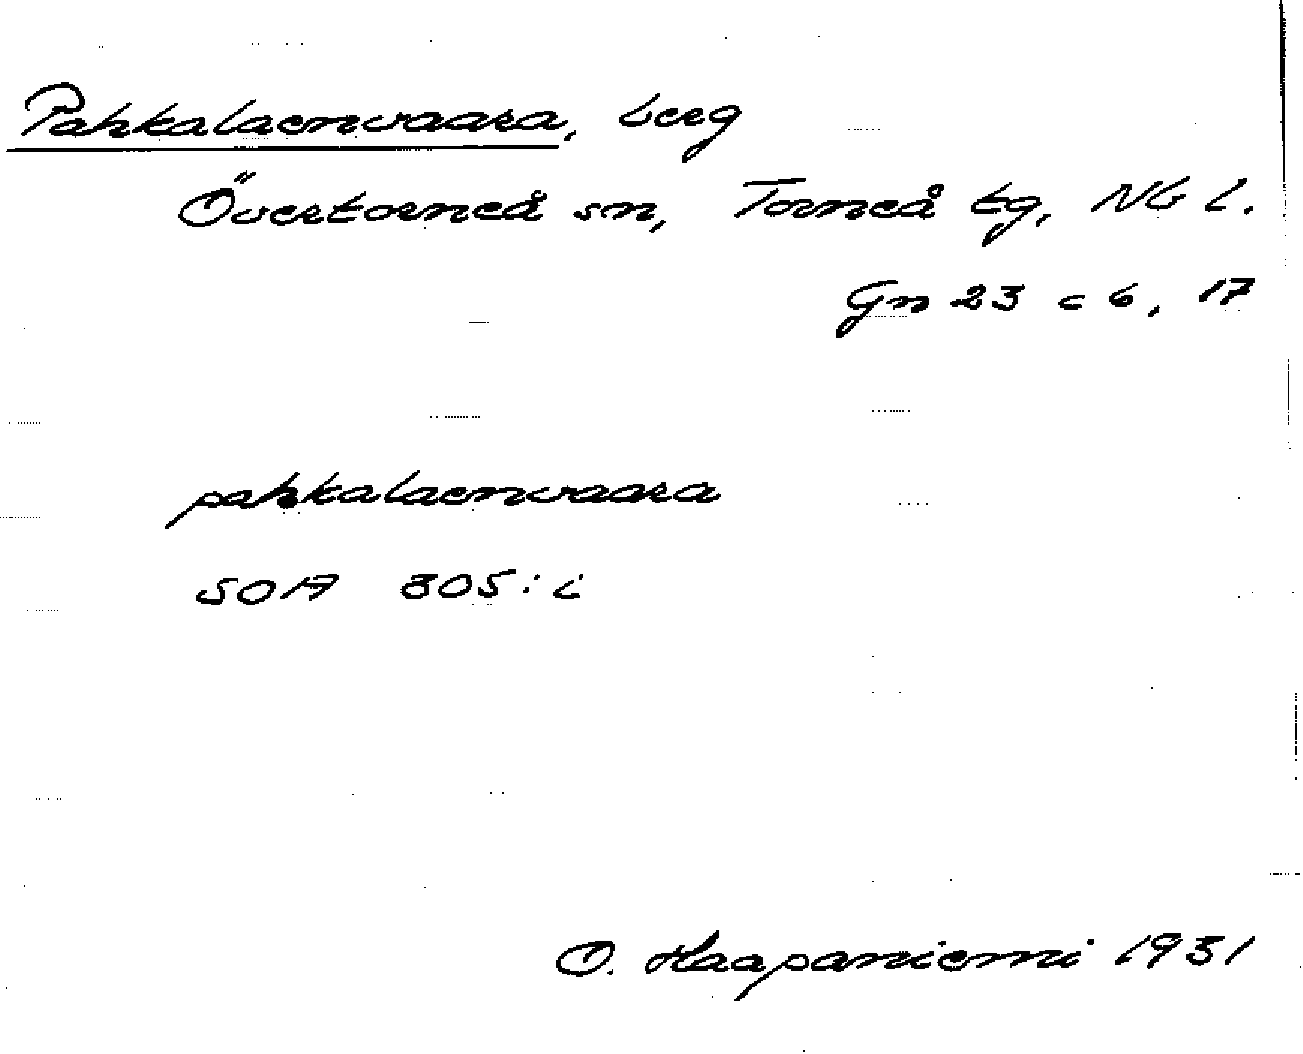 Pahkalaenvaara, berg
Övertorneå sn, Torneå tg, NG L.
Gn 23 c 6, 17
pahkalaenvaara
SOA 805:i
O. Haapaniemi 1931